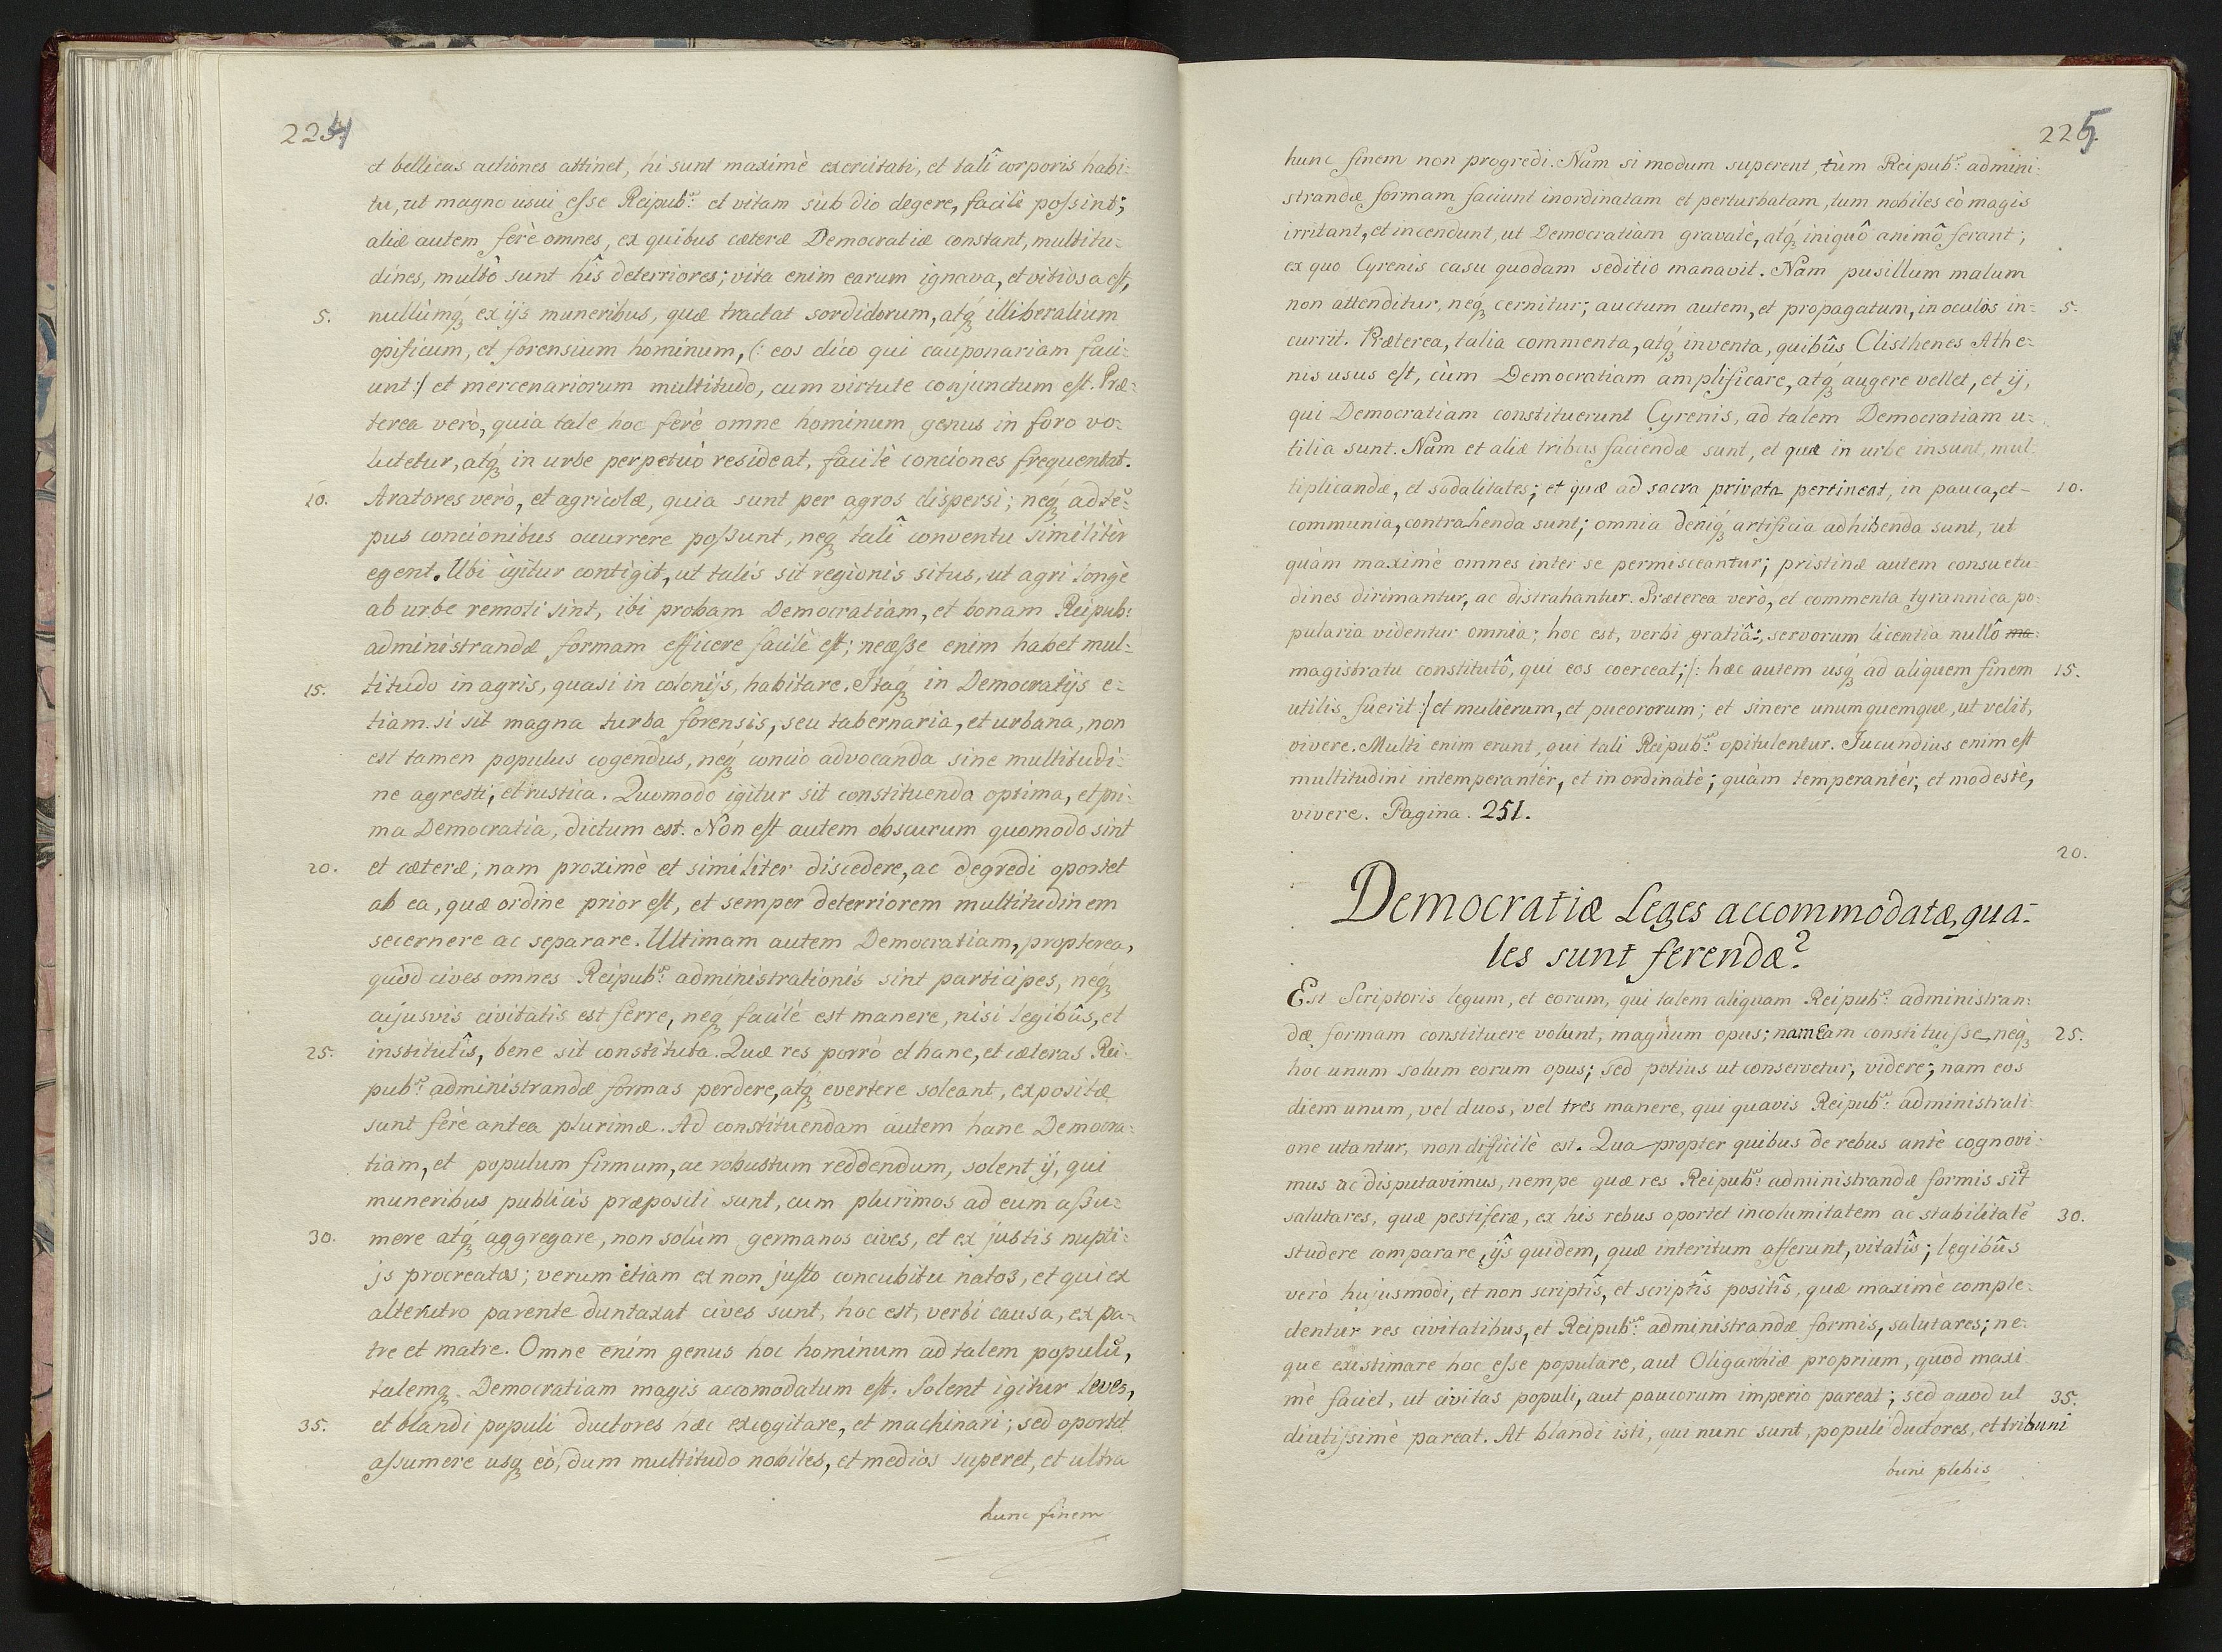 224
et bellicas actiones attinet, hi sunt maximè exercitati, et talî corporis habi:
tu, ut magno usui esse Reipubᶜ: et vitam sub dio degere, facilè possint;
aliæ autem ferè omnes, ex quibus cæteræ Democratiæ constant, multitu:
dines, multô sunt hîs deterriores; vita enim earum ignava, et vitiosa est,
5. nullùmq́ꝫ ex ijs muneribus, quæ tractat sordidorum, atq́ꝫ illiberalium
opificum, et forensium hominum, (: eos dico qui cauponariam faci:
unt :/ et mercenariorum multitudo, cum virtute conjunctum est. Præ:
terea verò, quia tale hoc ferè omne hominum genus in foro vo:
lutetur, atq́ꝫ in urbe perpetuò resideat, facilè conciones frequentat.
10. Aratores verò, et agricolæ, quia sunt per agros dispersi; neq́ꝫ ad tē:
pus concionibus occurrere possunt, neq́ꝫ talî conventu similitèr
egent. Ubi igitur contigit, ut talis sit regionis situs, ut agri longè
ab urbe remoti sint, ibi probam Democratiam, et bonam Reipub:
administrandæ formam efficere facilè est; necesse enim habet mul:
15. titudo in agris, quasi in colonijs, habitare. Itaq́ꝫ in Democratijs e:
tiam. si sit magna turba forensis, seu tabernaria, et urbana, non
est tamen populus cogendus, neq́ꝫ concio advocanda sine multitudi:
ne agresti, et rustica. Quomodo igitur sit constituenda optima, et pri:
ma Democratia, dictum est. Non est autem obscurum quomodo sint
20. et cæteræ; nam proximè et similiter discedere, ac degredi oportet
ab ea, quæ ordine prior est, et semper deteriorem multitudinem
secernere ac separare. Ultimam autem Democratiam, propterea,
quòd cives omnes Reipubᶜ: administrationis sint participes, neq́ꝫ
cujusvis civitatis est ferre, neq́ꝫ facilè est manere, nisi legibûs, et
25. institutîs, bene sit constituta. Quæ res porrò et hanc, et cæteras Rei:
pubᶜ: administrandæ formas perdere, atq́ꝫ evertere soleant, expositæ
sunt ferè antea plurimæ. Ad constituendam autem hanc Democra:
tiam, et populum firmum, ac robustum reddendum, solent ij, qui
muneribus publicis præpositi sunt, cum plurimos ad eum assu:
30. mere atq́ꝫ aggregare, non solùm germanos cives, et ex justis nupti:
js procreatos; verum etiam ex non justo concubitu natos, et qui ex
alterutro parente duntaxat cives sunt, hoc est, verbi causa, ex pa:
tre et matre. Omne enim genus hoc hominum ad talem populū,
talemq́ꝫ Democratiam magis accomodatum est. Solent igitur leves,
35. et blandi populi ductores hæc excogitare, et machinari; sed oportet
assumere usq́ꝫ eò, dum multitudo nobiles, et medios superet, et ultra
hunc finem
225.
hunc finem non progredi. Nam si modum superent, tùm Reipubᶜ: admini:
strandæ formam faciunt inordinatam et perturbatam, tum nobiles eò magis
irritant, et incendunt, ut Democratiam gravatè, atq́ꝫ iniquô animô ferant;
ex quo Cyrenis casu quodam seditio manavit. Nam pusillum malum
non attenditur, neq́ꝫ cernitur; auctum autem, et propagatum, in oculos in: 5.
currit. Præterea, talia commenta, atq́ꝫ inventa, quibûs Clisthenes Athe:
nis usus est, cùm Democratiam amplificare, atq́ꝫ augere vellet, et ij,
qui Democratiam constituerunt Cyrenis, ad talem Democratiam u:
tilia sunt. Nam et aliæ tribus faciendæ sunt, et quæ in urbe insunt, mul:
tiplicandæ, et sodalitates; et quæ ad sacra privata pertineat, in pauca, et 10.
communia, contrahenda sunt; omnia deniq́ꝫ artificia adhibenda sunt, ut
quàm maximè omnes inter se permisceantur; pristinæ autem consuetu:
dines dirimantur, ac distrahantur. Præterea verò, et commenta tyrannica po:
pularia videntur omnia; hoc est, verbi gratiâ:, servorum licentia nullô ma:
magistratu constitutô, qui eos coerceat; /: hæc autem usq́ꝫ ad aliquem finem 15.
utilis fuerit :/ et mulierum, et pueororum; et sinere unumquemque, ut velit,
vivere. Multi enim erunt, qui tali Reipubᶜᵃᵉ: opitulentur. Jucundius enim est
multitudini intemperantèr, et inordinatè; quàm temperantèr, et modestè,
vivere. Pagina. 251.
20.
Democratiæ Leges accommodatæ, qua:
les sunt ferendæ?
Est Scriptoris legum, et eorum, qui talem aliquam Reipubᶜ: administran:
dæ formam constituere volunt, magnum opus; nam eam constituisse neq́ꝫ 25.
hoc unum solum eorum opus; sed potius ut conservetur, videre; nam eos
diem unum, vel duos, vel tres manere, qui quavis Reipubᶜ: administrati:
one utantur, non difficilè est. Qua propter quibus de rebus antè cognovi:
mus ac disputavimus, nempe quæ res Reipubᶜ: administrandæ formis sit
salutares, quæ pestiferæ, ex his rebus oportet incolumitatem ac stabilitatē 30.
studere comparare, ijs quidem, quæ interitum afferunt, vitatîs; legibûs
verò hujusmodi, et non scriptîs, et scriptîs positîs, quæ maximè comple:
ctentur res civitatibus, et Reipubᶜ: administrandæ formis, salutares; ne:
que existimare hoc esse populare, aut Oligarchiæ proprium, quod maxi:
mè faciet, ut civitas populi, aut paucorum imperio pareat; sed quod ut 35.
diutissimè pareat. At blandi isti, qui nunc sunt, populi ductores, et tribuni
buni plebis